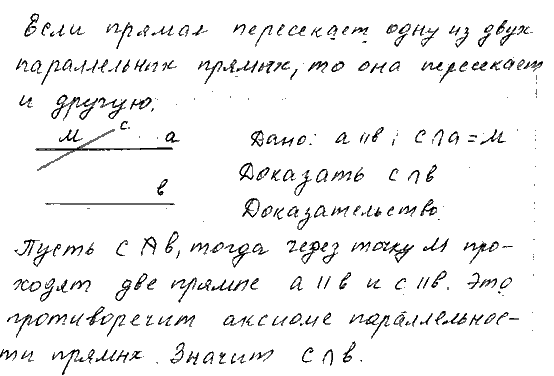 Если прямая пересекает одну из двух
параллельных прямых, то она пересекает
и другую.
м с. а
Дано: а ΙΙ в ; с ∩ а = м
в
Доказать с ∩ в
Доказательство
Пусть с ∩̸ в, тогда через точку м про-
ходят две прямые а ΙΙ в и с ΙΙ в. Это
противоречит аксиоме параллельнос-
ти прямых. Значит с ∩ в.